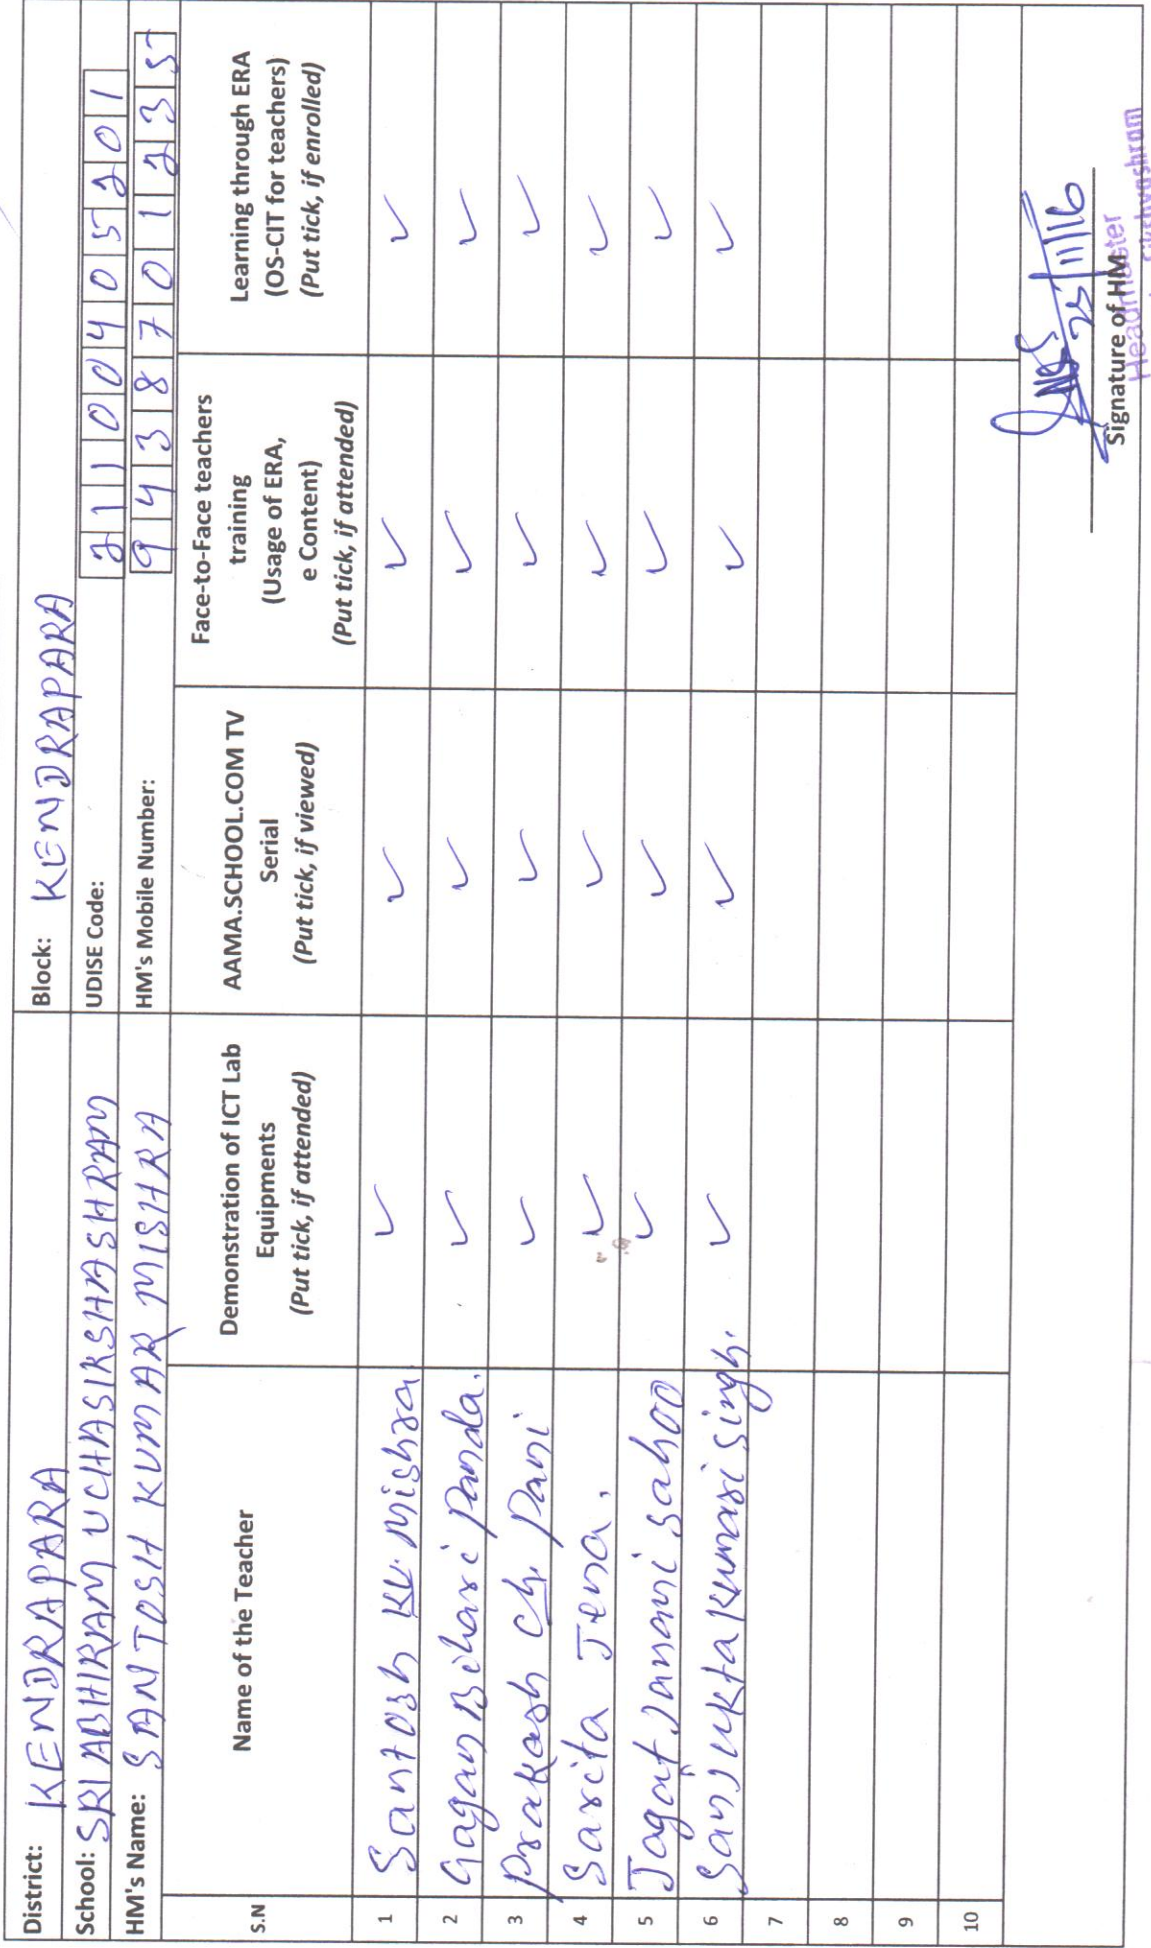 District: KENDRAPARA Block: KENDRAPARA
School: SRI ABHIRAM UCHASIKSHASHRAM UDISE Code: 21100405201
HM's Name: SANTOSH KUMAR MISHRA HM's Mobile Number: 9438701235
S.N Name of the Teacher Demonstration of ICT Lab Equipments (Put tick, if attended) AAMA.SCHOOL.COM TV Serial (Put tick, if viewed) Face-to-Face teachers training (Usage of ERA, e Content) (Put tick, if attended) Learning through ERA (OS-CIT for teachers) (Put tick, if enrolled)
1 Santosh Ku. Mishra ✓ ✓ ✓ ✓
2 Gagan Bihari Panda. ✓ ✓ ✓ ✓
3 Prakash Ch. Pani ✓ ✓ ✓ ✓
4 Sarita Jena. ✓ ✓ ✓ ✓
5 Jagat Janani Sahoo ✓ ✓ ✓ ✓
6 Sanjukta Kumari Singh. ✓ ✓ ✓ ✓
7
8
9
10
25/11/16
Signature of HM
Headmaster